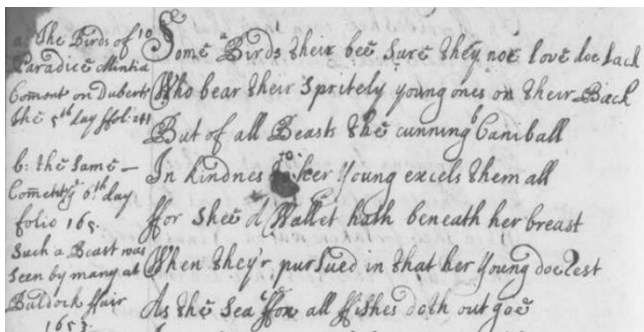 a: The Birds of
Paradice Mintia
Coment on Dubert
the 5th day ffol: 241
b: the same
Coment 6th day
folio 165
Such a Beast was
seen by many at
Baldock ffair
1653
10
Some a Birds their bee sure they noe love doe lack
Who bear their Spritely young ones on their Back
But of all Beasts the cunning b Caniball
In kindnes to her Young excels them all
ffor Shee a Wallet hath beneath her breast
When they'r pursued in that her Young doe rest
As the Sea c ffox all ffishes doth out goe